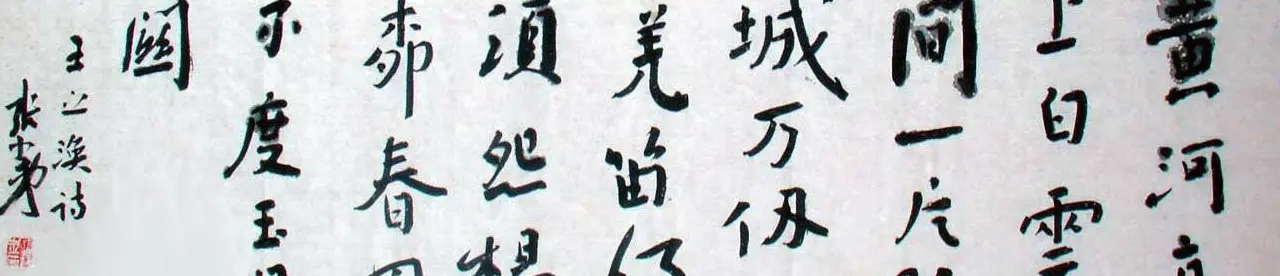 黃河
上白雲
間一片
城万仞
羌笛何
須怨楊
桺春
不度玉
關
王之渙诗